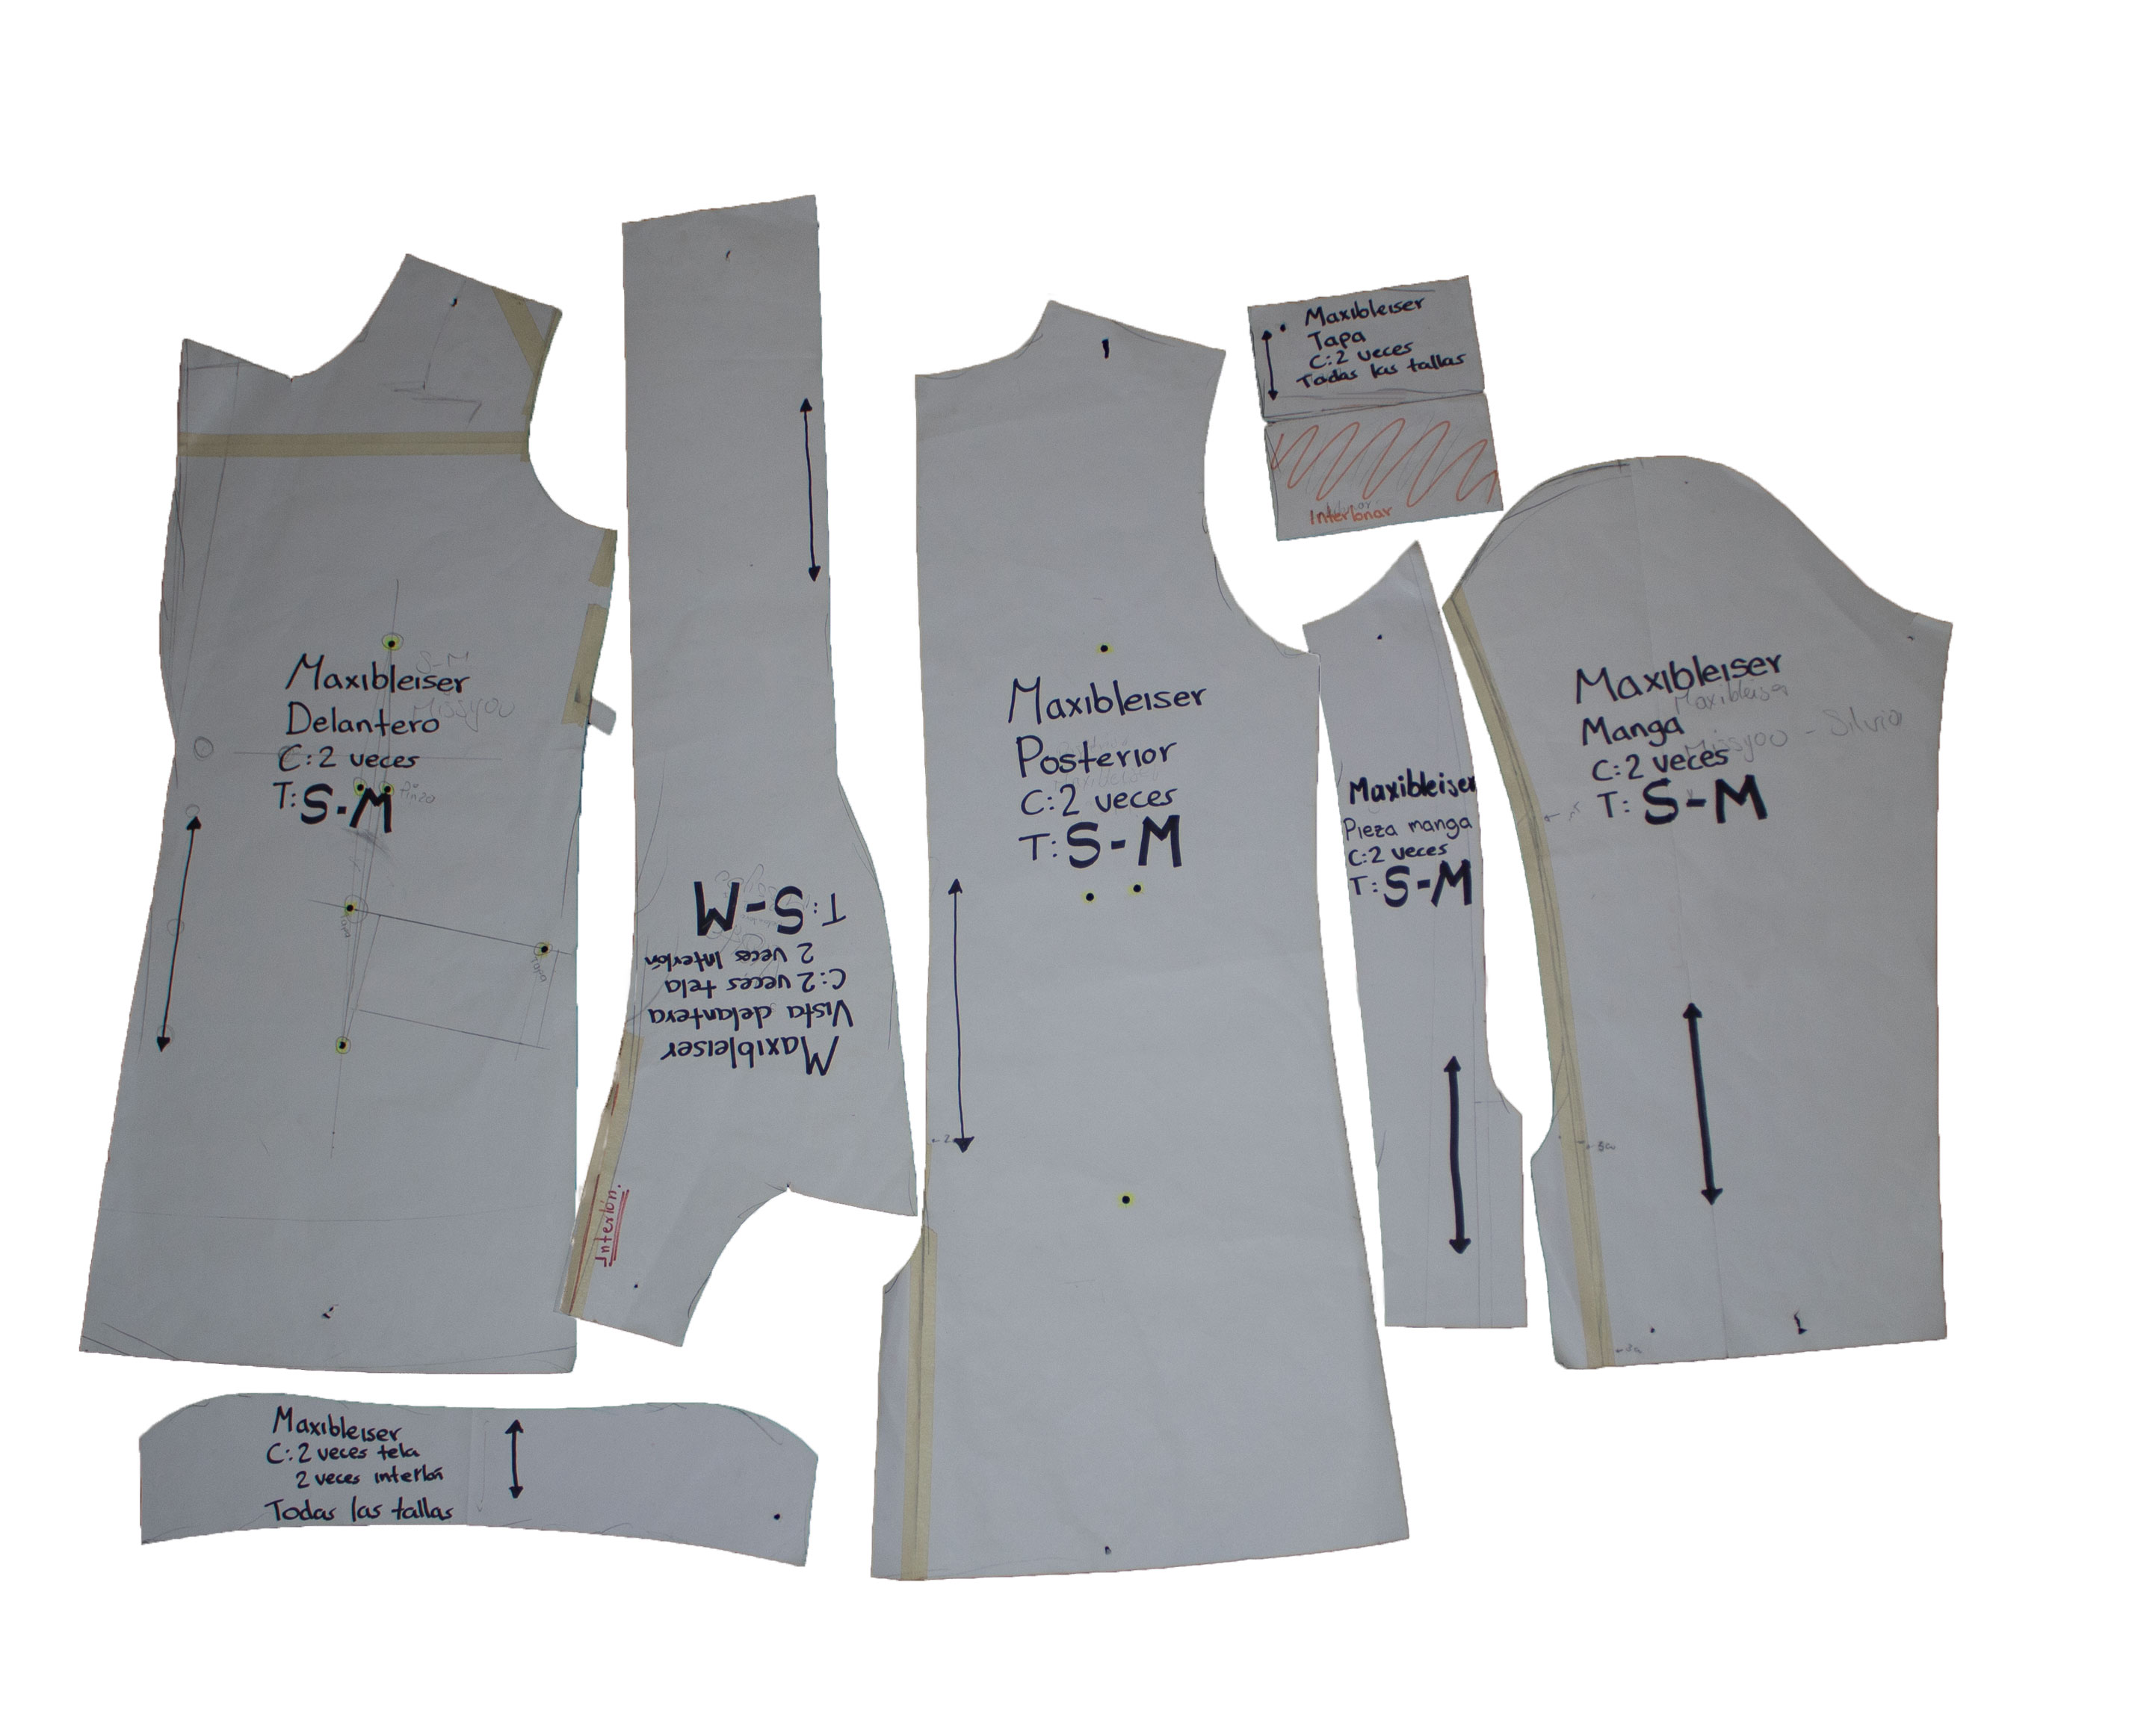 Maxibleiser
Delantero
C:2 veces
T:S-M
S-M
Missyou
Pinza
Tapa
Tapa
Maxibleiser
Vista delantera
C:2 veces tela
2 veces Interlón
T:S-M
Interlón.
Maxibleiser
Posterior
C:2 veces
T:S-M
Maxibleiser
Tapa
C:2 veces
Todas las tallas
Interlonar
Maxibleiser
Pieza manga
C:2 veces
T:S-M
Maxibleiser
Manga
C:2 veces
T:S-M
Maxibleiser
Missyou - Silvia
Maxibleiser
C:2 veces tela
2 veces interlón
Todas las tallas